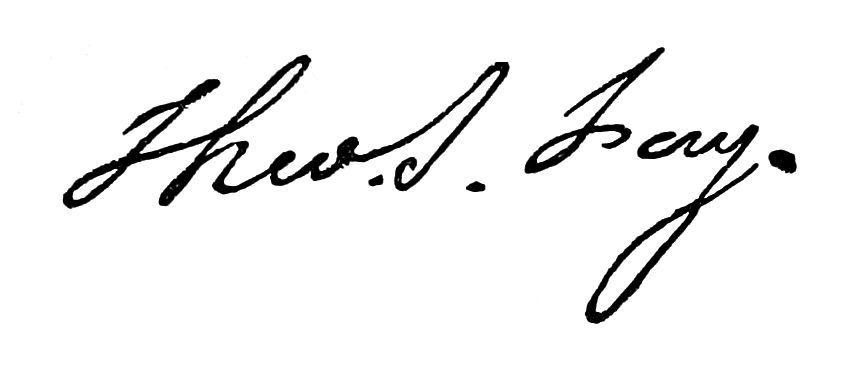 Theo. S. Fay.